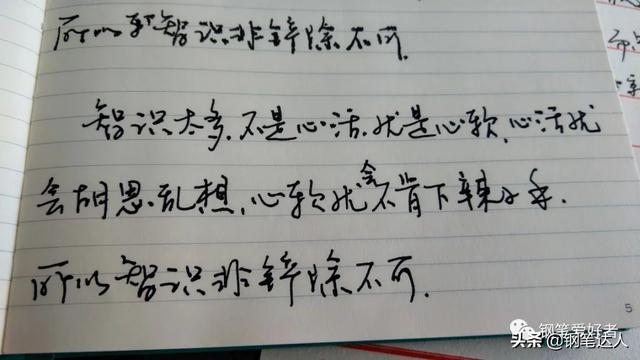 所以智识非铲除不可.
智识太多.不是心活.就是心软.心活就
会胡思乱想,心软就会不肯下辣手.
所以智识非铲除不可.
5
钢笔爱好者
头条 @钢笔达人